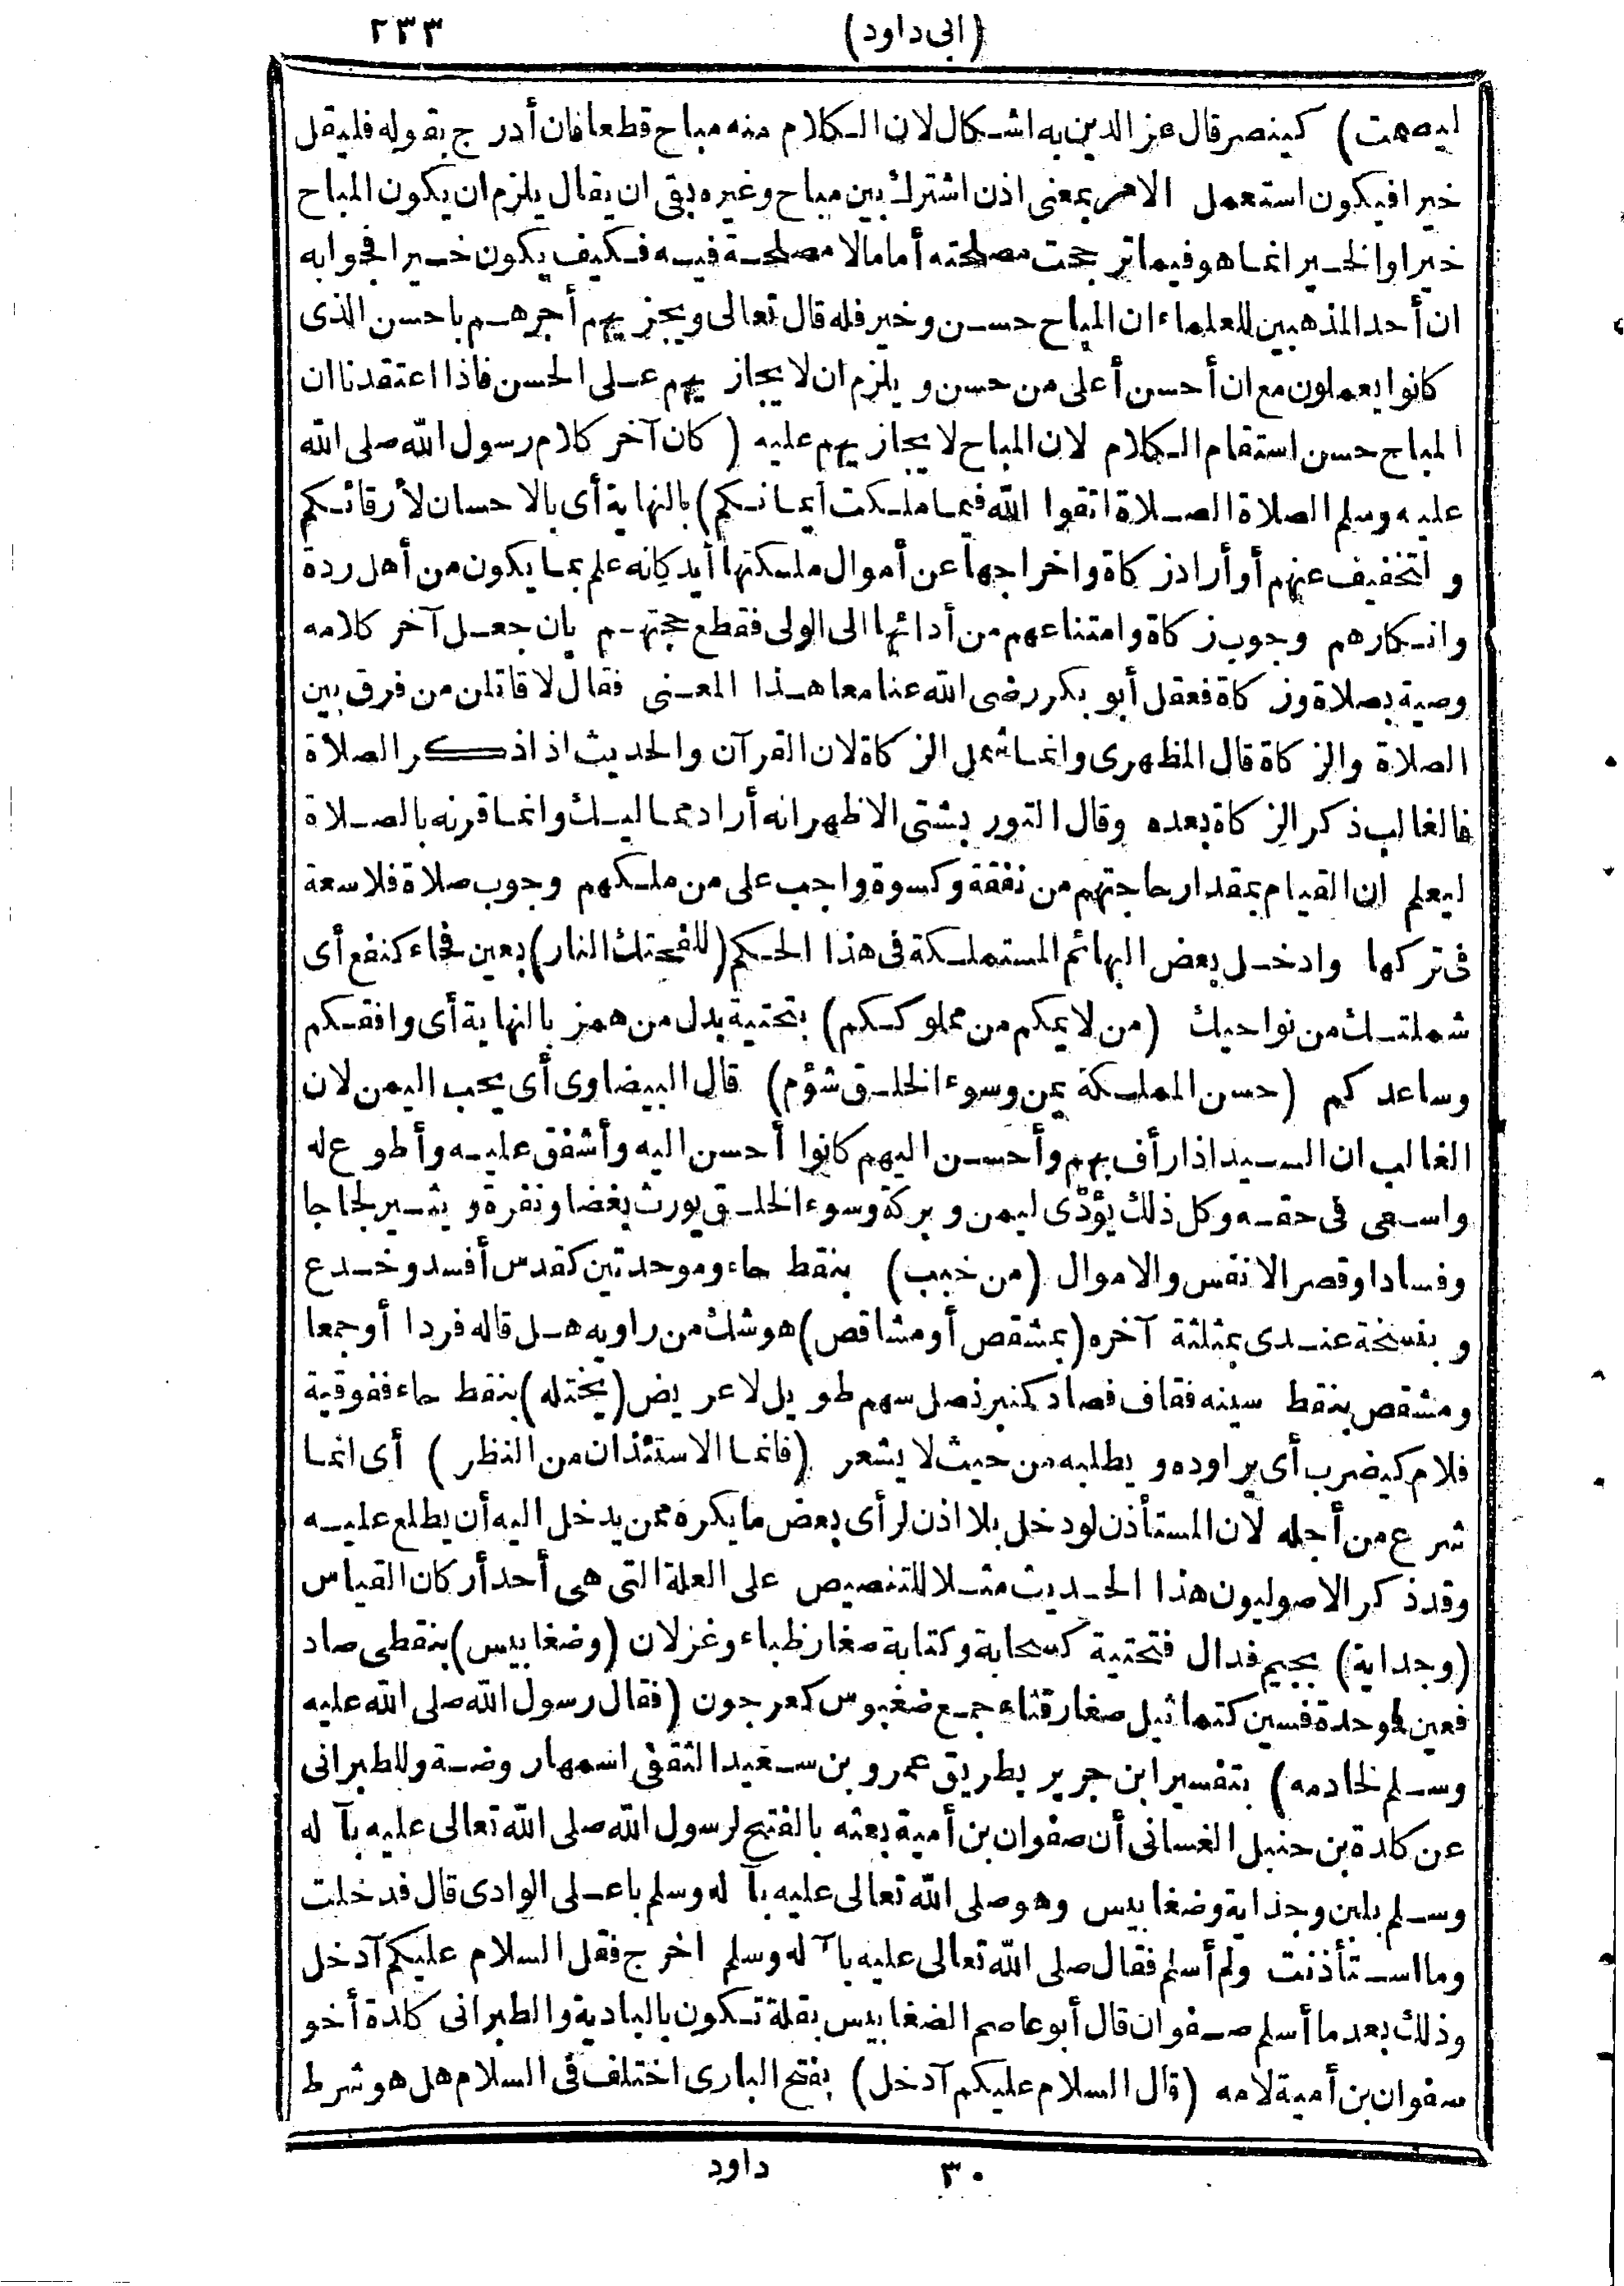 (ابى داود) ٢٣٣
ليصمت) كينصر قال عز الدين به اشكال لان الكلام منه مباح قطعا فان أدرج بقوله فليقل
خيرا فيكون استعمل الامر بمعنى اذن اشترك بين مباح وغيره بقى ان يقال يلزم ان يكون المباح
خيرا والخير انما هو فيما ترجحت مصلحته أما مالا مصلحة فيه فكيف يكون خيرا فجوابه
ان أحد المذهبين للعلماء ان المباح حسن وخير فله قال تعالى ويجزيهم أجرهم باحسن الذى
كانوا يعملون مع ان أحسن أعلى من حسن ويلزم ان لا يجازيهم على الحسن فاذا اعتقدنا ان
المباح حسن استقام الكلام لان المباح لا يجازيهم عليه (كان آخر كلام رسول الله صلى الله
عليه وسلم الصلاة الصلاة اتقوا الله فيما ملكت أيمانكم) بالنهاية أى بالاحسان لأرقائكم
والتخفيف عنهم أو أراد زكاة واخراجها عن أموال ملكتها أيد كانه علم بما يكون من أهل ردة
وانكارهم وجوب زكاة وامتناعهم من أدائها الى الولى فقطع حجتهم بان جعل آخر كلامه
وصية بصلاة وزكاة فعقل أبو بكر رضى الله عنا معا هذا المعنى فقال لاقاتلن من فرق بين
الصلاة والزكاة قال المظهرى وانما شمل الزكاة لان القرآن والحديث اذا ذكر الصلاة
فالغالب ذكر الزكاة بعده وقال التوربشتى الاظهر انه أراد مماليك وانما قرنه بالصلاة
ليعلم ان القيام بمقدار حاجتهم من نفقة وكسوة واجب على من ملكهم وجوب صلاة فلا سعة
فى تركها وادخل بعض البهائم المستملكة فى هذا الحكم (للفعتك النار) بعين فحاء كنفع أى
شملتك من نواحيك (من لايمكم من مملوككم) بتحتية بدل من همز بالنهاية أى وافقكم
وساعدكم (حسن الملكة يمن وسوء الخلق شؤم) قال البيضاوى أى يجب اليمن لان
الغالب ان السيد اذا رأف بهم وأحسن اليهم كانوا أحسن اليه وأشفق عليه وأطوع له
واسعى فى حقه وكل ذلك يؤدّى ليمن وبركة وسوء الخلق يورث بغضا ونفرة ويثير لجاجا
وفسادا وقصر الانفس والاموال (من خبب) بنقط حاء وموحدتين كقدس أفسد وخدع
وبنسخة عندى بمثلثة آخره (بمشقص أو مشاقص) هو شك من راويه هل قاله فردا أو جمعا
ومشقص بنقط سينه فقاف فصاد كمنبر نصل سهم طويل لا عريض (يختله) بنقط حاء ففوقية
فلام كيضرب أى يراوده ويطلبه من حيث لا يشعر (فانما الاستئذان من النظر) أى انما
شرع من أجله لان المستأذن لو دخل بلا اذن لرأى بعض ما يكره ممن يدخل اليه أن يطلع عليه
وقد ذكر الاصوليون هذا الحديث مثلا للتنصيص على العلة التى هى أحد أركان القياس
(وجداية) بجيم فدال فتحتية كسحابة وكتابة صغار ظباء وغزلان (وضغابيس) بنقطى صاد
فعين فموحدة فسين كتماثيل صغار قثاء جمع ضغبوس كعرجون (فقال رسول الله صلى الله عليه
وسلم لخادمه) بتفسير ابن جرير بطريق عمرو بن سعيد الثقفى اسمها روضة وللطبرانى
عن كلدة بن حنبل الغسانى أن صفوان بن أمية بعثه بالفتح لرسول الله صلى الله تعالى عليه بآله
وسلم بلبن وجداية وضغابيس وهو صلى الله تعالى عليه بآله وسلم باعلى الوادى قال فدخلت
وما استأذنت ولم أسلم فقال صلى الله تعالى عليه بآله وسلم اخرج فقل السلام عليكم آدخل
وذلك بعد ما أسلم صفوان قال أبو عاصم الضغابيس بقلة تكون بالبادية والطبرانى كلدة أخو
صفوان بن أمية لامه (قال السلام عليكم آدخل) بفتح البارى اختلف فى السلام هل هو شرط
٣٠ داود